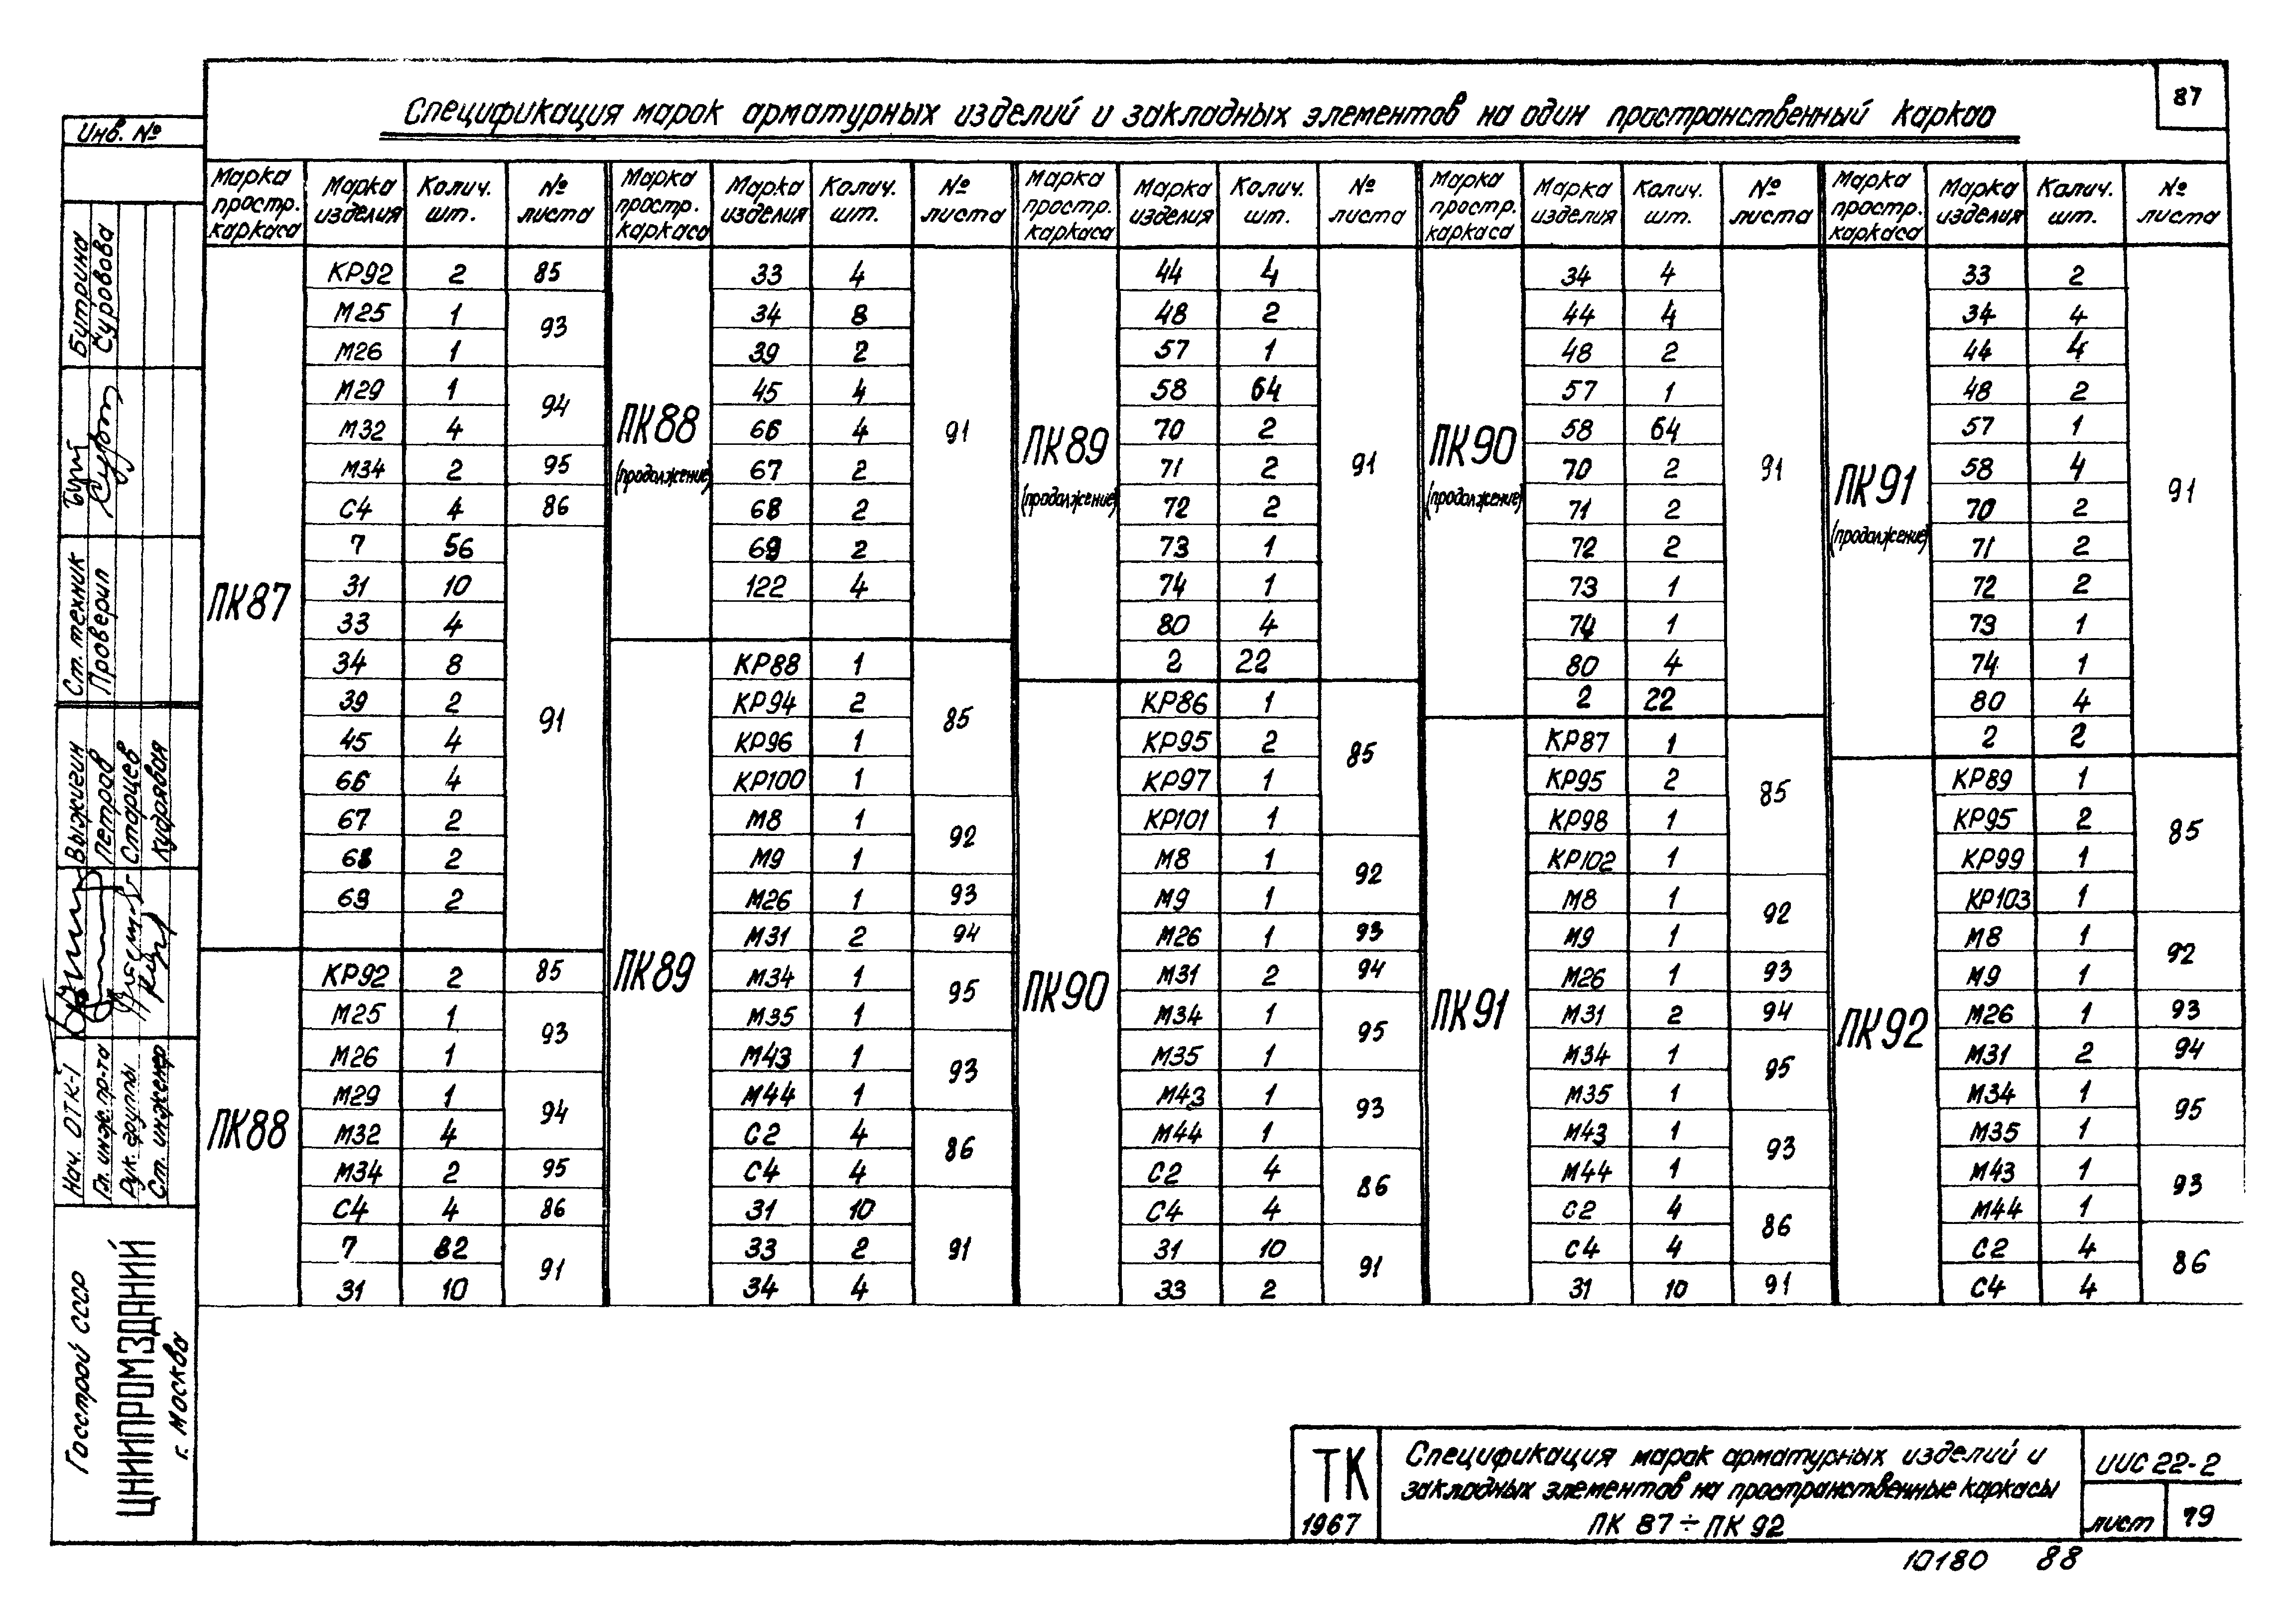 87
Спецификация марок арматурных изделий и закладных элементов на один пространственный каркас
Марка простр. каркаса | Марка изделия | Колич. шт. | № листа
ПК87
КР92 2 85
М25 1 93
М26 1
М29 1 94
М32 4
М34 2 95
С4 4 86
7 56 91
31 10
33 4
34 8
39 2
45 4
66 4
67 2
68 2
69 2
ПК88
КР92 2 85
М25 1 93
М26 1
М29 1 94
М32 4
М34 2 95
С4 4 86
7 82 91
31 10
Марка простр. каркаса | Марка изделия | Колич. шт. | № листа
ПК88 (продолжение)
33 4 91
34 8
39 2
45 4
66 4
67 2
68 2
69 2
122 4
ПК89
КР88 1 85
КР94 2
КР96 1
КР100 1
М8 1 92
М9 1
М26 1 93
М31 2 94
М34 1 95
М35 1
М43 1 93
М44 1
С2 4 86
С4 4
31 10 91
33 2
34 4
Марка простр. каркаса | Марка изделия | Колич. шт. | № листа
ПК89 (продолжение)
44 4 91
48 2
57 1
58 64
70 2
71 2
72 2
73 1
74 1
80 4
2 22
ПК90
КР86 1 85
КР95 2
КР97 1
КР101 1
М8 1 92
М9 1
М26 1 93
М31 2 94
М34 1 95
М35 1
М43 1 93
М44 1
С2 4 86
С4 4
31 10 91
33 2
Марка простр. каркаса | Марка изделия | Колич. шт. | № листа
ПК90 (продолжение)
34 4 91
44 4
48 2
57 1
58 64
70 2
71 2
72 2
73 1
74 1
80 4
2 22
ПК91
КР87 1 85
КР95 2
КР98 1
КР102 1
М8 1 92
М9 1
М26 1 93
М31 2 94
М34 1 95
М35 1
М43 1 93
М44 1
С2 4 86
С4 4
31 10 91
Марка простр. каркаса | Марка изделия | Колич. шт. | № листа
ПК91 (продолжение)
33 2 91
34 4
44 4
48 2
57 1
58 4
70 2
71 2
72 2
73 1
74 1
80 4
2 2
ПК92
КР89 1 85
КР95 2
КР99 1
КР103 1
М8 1 92
М9 1
М26 1 93
М31 2 94
М34 1 95
М35 1
М43 1 93
М44 1
С2 4 86
С4 4
Инв. №
Ст. техник Бутрина
Проверил Суровова
Нач. ОТК-1 Выжигин
Гл. инж. пр-та Петров
Рук. группы Старцев
Ст. инженер Кудрявая
Госстрой СССР
ЦНИИПРОМЗДАНИЙ
г. Москва
ТК
1967
Спецификация марок арматурных изделий и
закладных элементов на пространственные каркасы
ПК 87÷ПК 92
ИИС 22-2
лист 79
10180 88